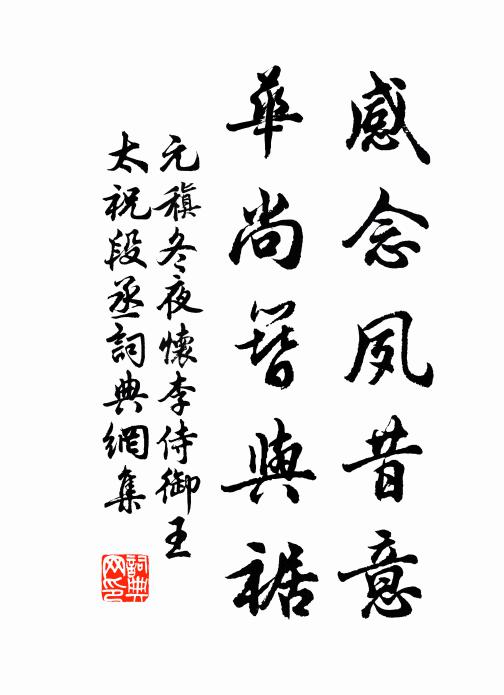 感念夙昔意
華尚簪與裾
元稹冬夜懷李侍御王
太祝段丞詞典網集
詞典
网印